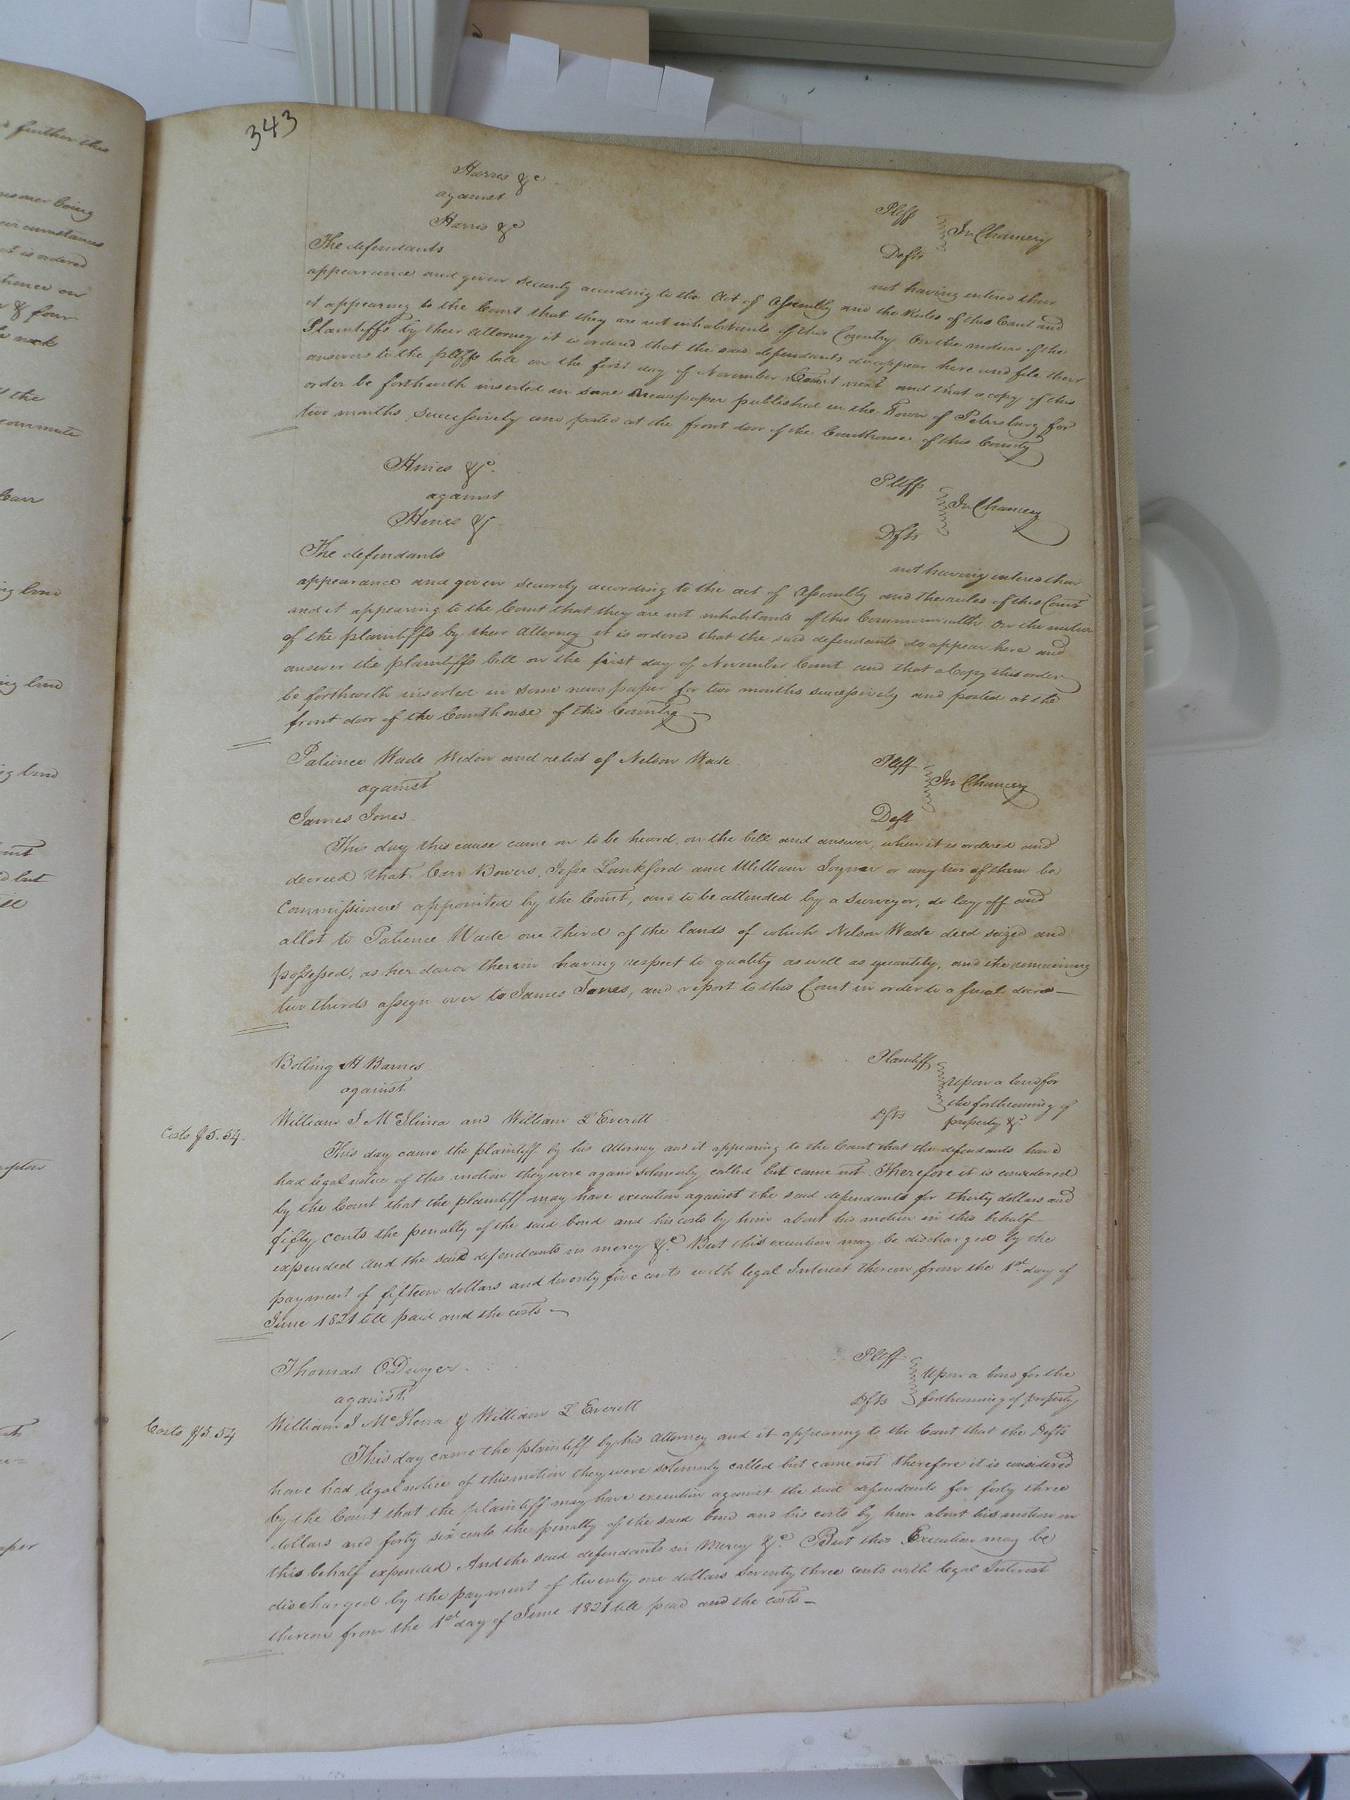 343
Harris &c
against
Harris &c
Pltff
Defts
In Chancery
The defendants not having entered their
appearance and given security according to the Act of Assembly and the Rules of this Court and
it appearing to the Court that they are not inhabitants of this Country On the motion of the
Plaintiffs by their Attorney it is ordered that the said defendants do appear here and file their
answers to the pltffs bill on the first day of November Court next and that a copy of this
order be forthwith inserted in some Newspaper published in the Town of Petersburg for
two months successively and posted at the front door of the Courthouse of this County
Hines &c.
against
Hines &c
Pltffs
Defts
In Chancery
The defendants not having entered their
appearance and given security according to the act of Assembly and the rules of this Court
and it appearing to the Court that they are not inhabitants of this Commonwealth On the motion
of the plaintiffs by their Attorney it is ordered that the said defendants do appear here and
answer the plaintiffs bill on the first day of November Court and that a Copy this order
be forthwith inserted in some newspaper for two months successively and posted at the
front door of the Courthouse of this Country
Patience Wade Widow and relict of Nelson Wade
against
James Jones
Pltff
Deft
In Chancery
This day this cause came on to be heard, on the bill and answer, when it is ordered and
decreed that Carr Bowers, Jesse Lankford and William Joyner or any two of them be
Commissioners appointed by the Court, and to be attended by a Surveyor, do lay off and
allot to Patience Wade one third of the lands of which Nelson Wade died seized and
possessed, as her dower therein having respect to quality as well as quantity, and the remaining
two thirds assign over to James Jones, and report to this Court in order to a final decree
Bolling H Barnes
against
William J McIlinea and William L Everitt
Plaintiff
Defts
Upon a bond for
the forthcoming of
property &c
Costs $5.54.
This day came the plaintiff by his Attorney and it appearing to the Court that the defendants have
had legal notice of this motion they were again solemnly called but came not Therefore it is considered
by the Court that the plaintiff may have execution against the said defendants for thirty dollars and
fifty cents the penalty of the said bond and his costs by him about his motion in this behalf
expended And the said defendants in mercy &c. But this execution may be discharged by the
payment of fifteen dollars and twenty five cents with legal Interest thereon from the 1st. day of
June 1821 till paid and the costs
Thomas ODwyer
against
William J McIlena & William L Everitt
Pltff
Defts
Upon a bond for the
forthcoming of property
Costs $5.54
This day came the plaintiff by his Attorney and it appearing to the Court that the Defts
have had legal notice of this motion they were solemnly called but came not therefore it is considered
by the Court that the plaintiff may have execution against the said defendants for forty three
dollars and forty six cents the penalty of the said bond and his costs by him about his motion in
this behalf expended And the said defendants in Mercy &c. But this Execution may be
discharged by the payment of twenty one dollars seventy three cents with legal Interest
thereon from the 1st day of June 1821 till paid and the costs